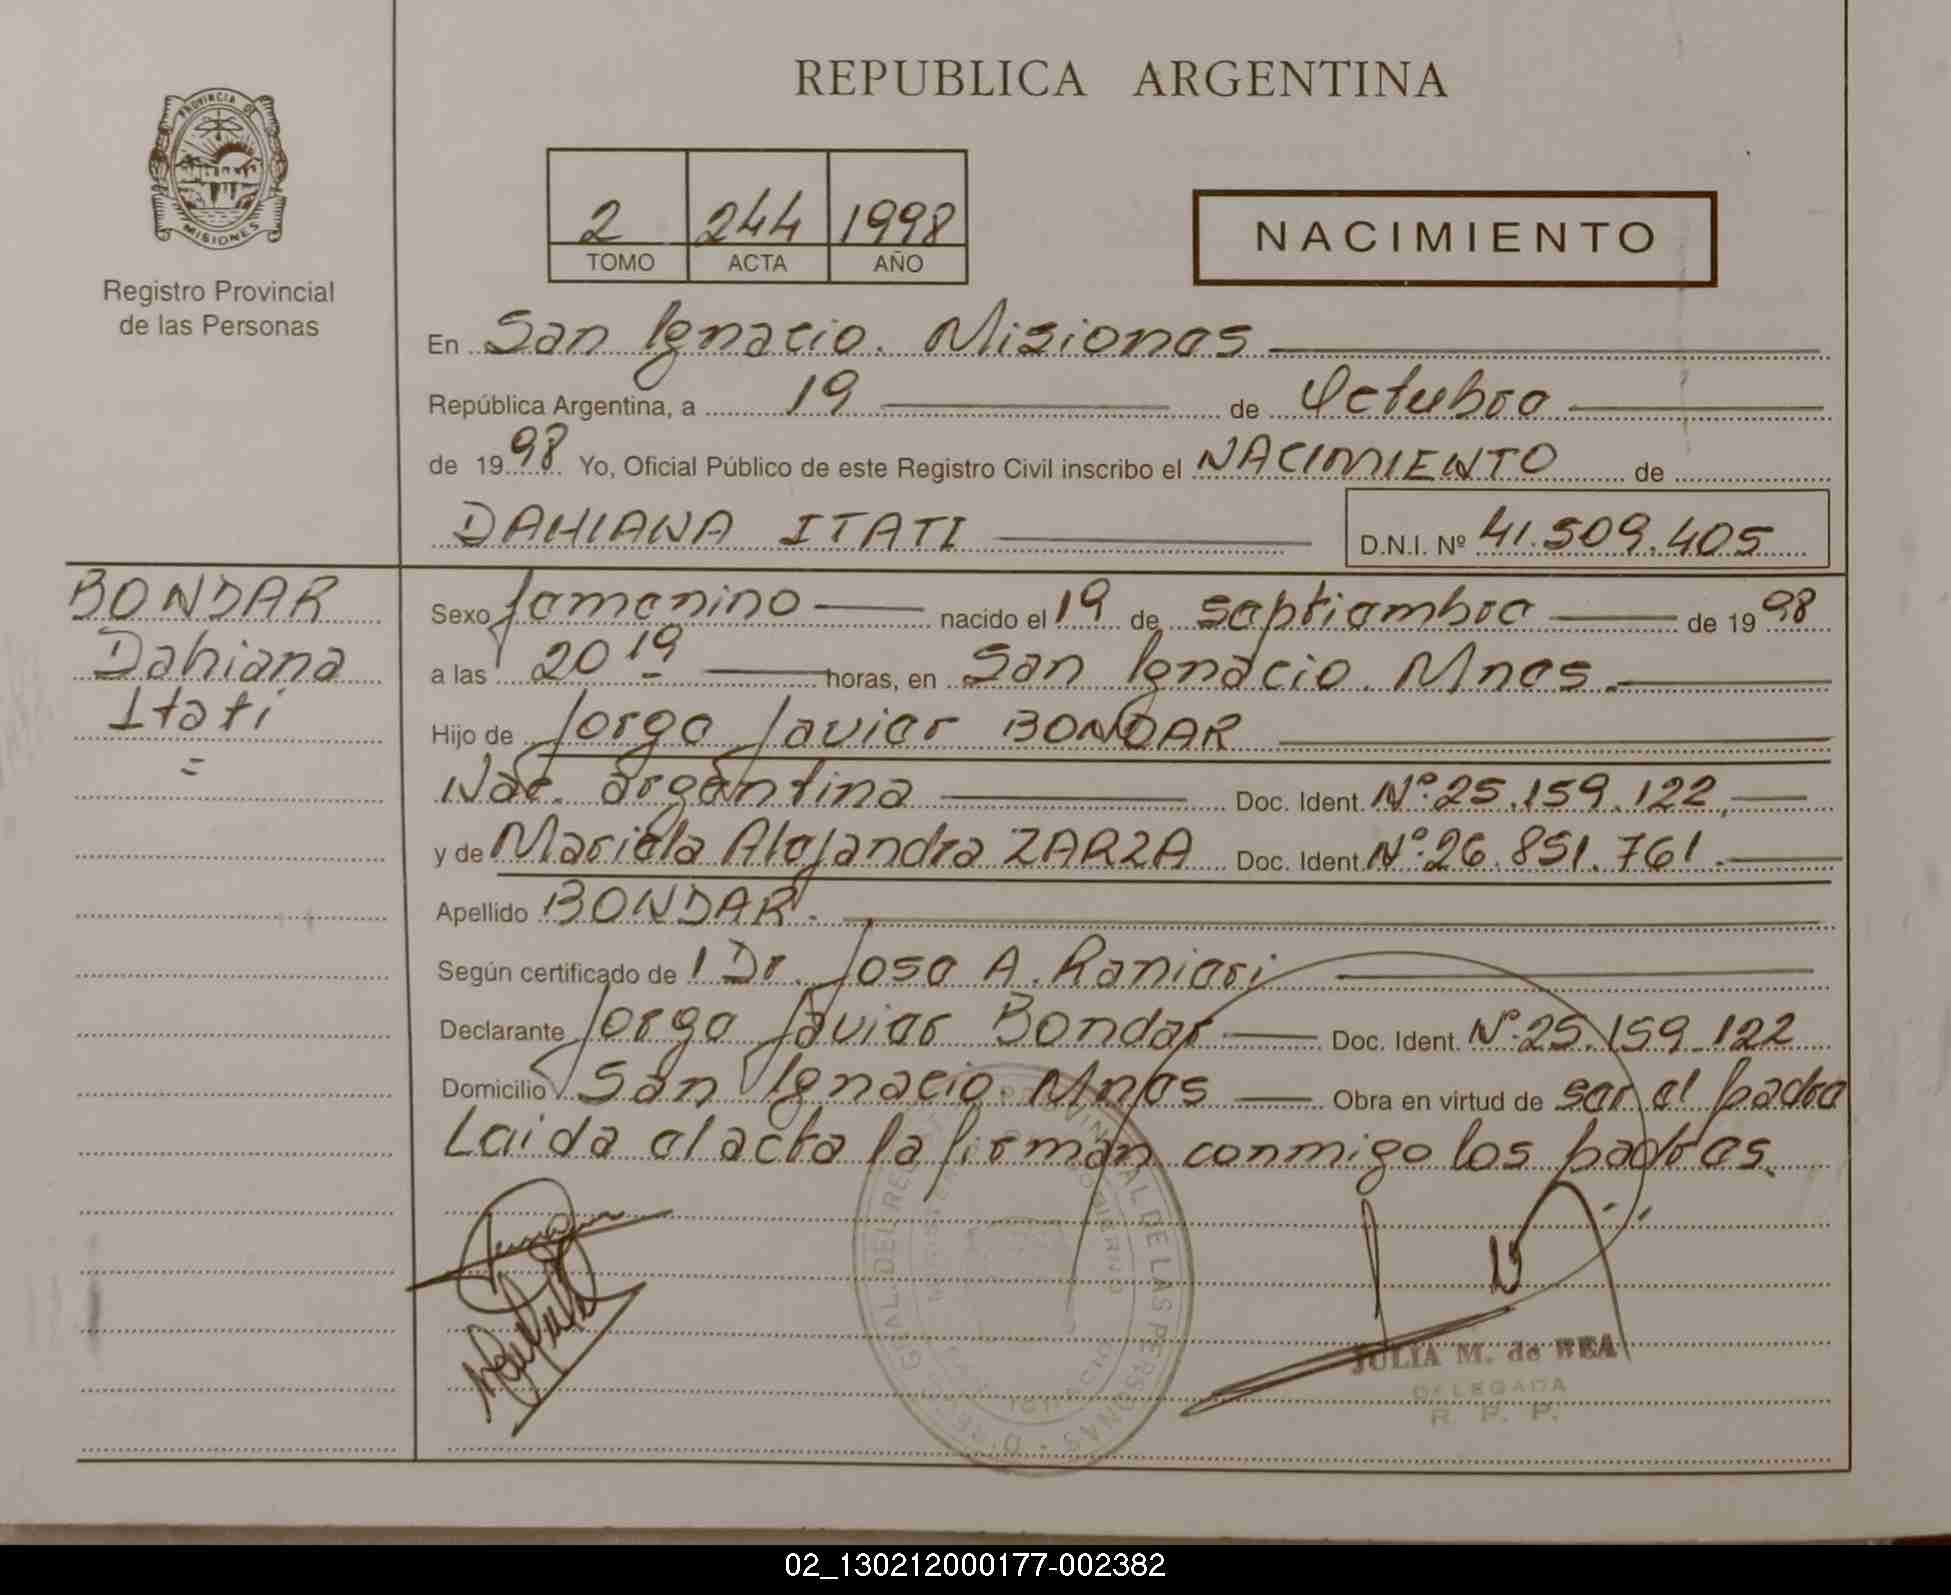 REPUBLICA ARGENTINA
PROVINCIA DE
MISIONES
Registro Provincial
de las Personas
2 244 1998
TOMO ACTA AÑO
NACIMIENTO
En San Ignacio. Misiones
República Argentina, a 19 de Octubre
de 1998 Yo, Oficial Público de este Registro Civil inscribo el NACIMIENTO de
DAHIANA ITATI D.N.I. Nº 41.509.405
BONDAR
Dahiana
Itatí
=
Sexo femenino nacido el 19 de septiembre de 1998
a las 20 19 horas, en San Ignacio Mnes.
Hijo de Jorge Javier BONDAR
Nac. argentina Doc. Ident. Nº 25.159.122,
y de Mariela Alejandra ZARZA Doc. Ident. Nº 26.851.761.
Apellido BONDAR.
Según certificado de 1 Dr. Jose A. Ranieri
Declarante Jorge Javier Bondar Doc. Ident. Nº 25.159.122
Domicilio San Ignacio. Mnes Obra en virtud de ser el padre
Leida el acta la firman conmigo los padres.
JULIA M. de BEA
DELEGADA
R. P. P.
02_130212000177-002382